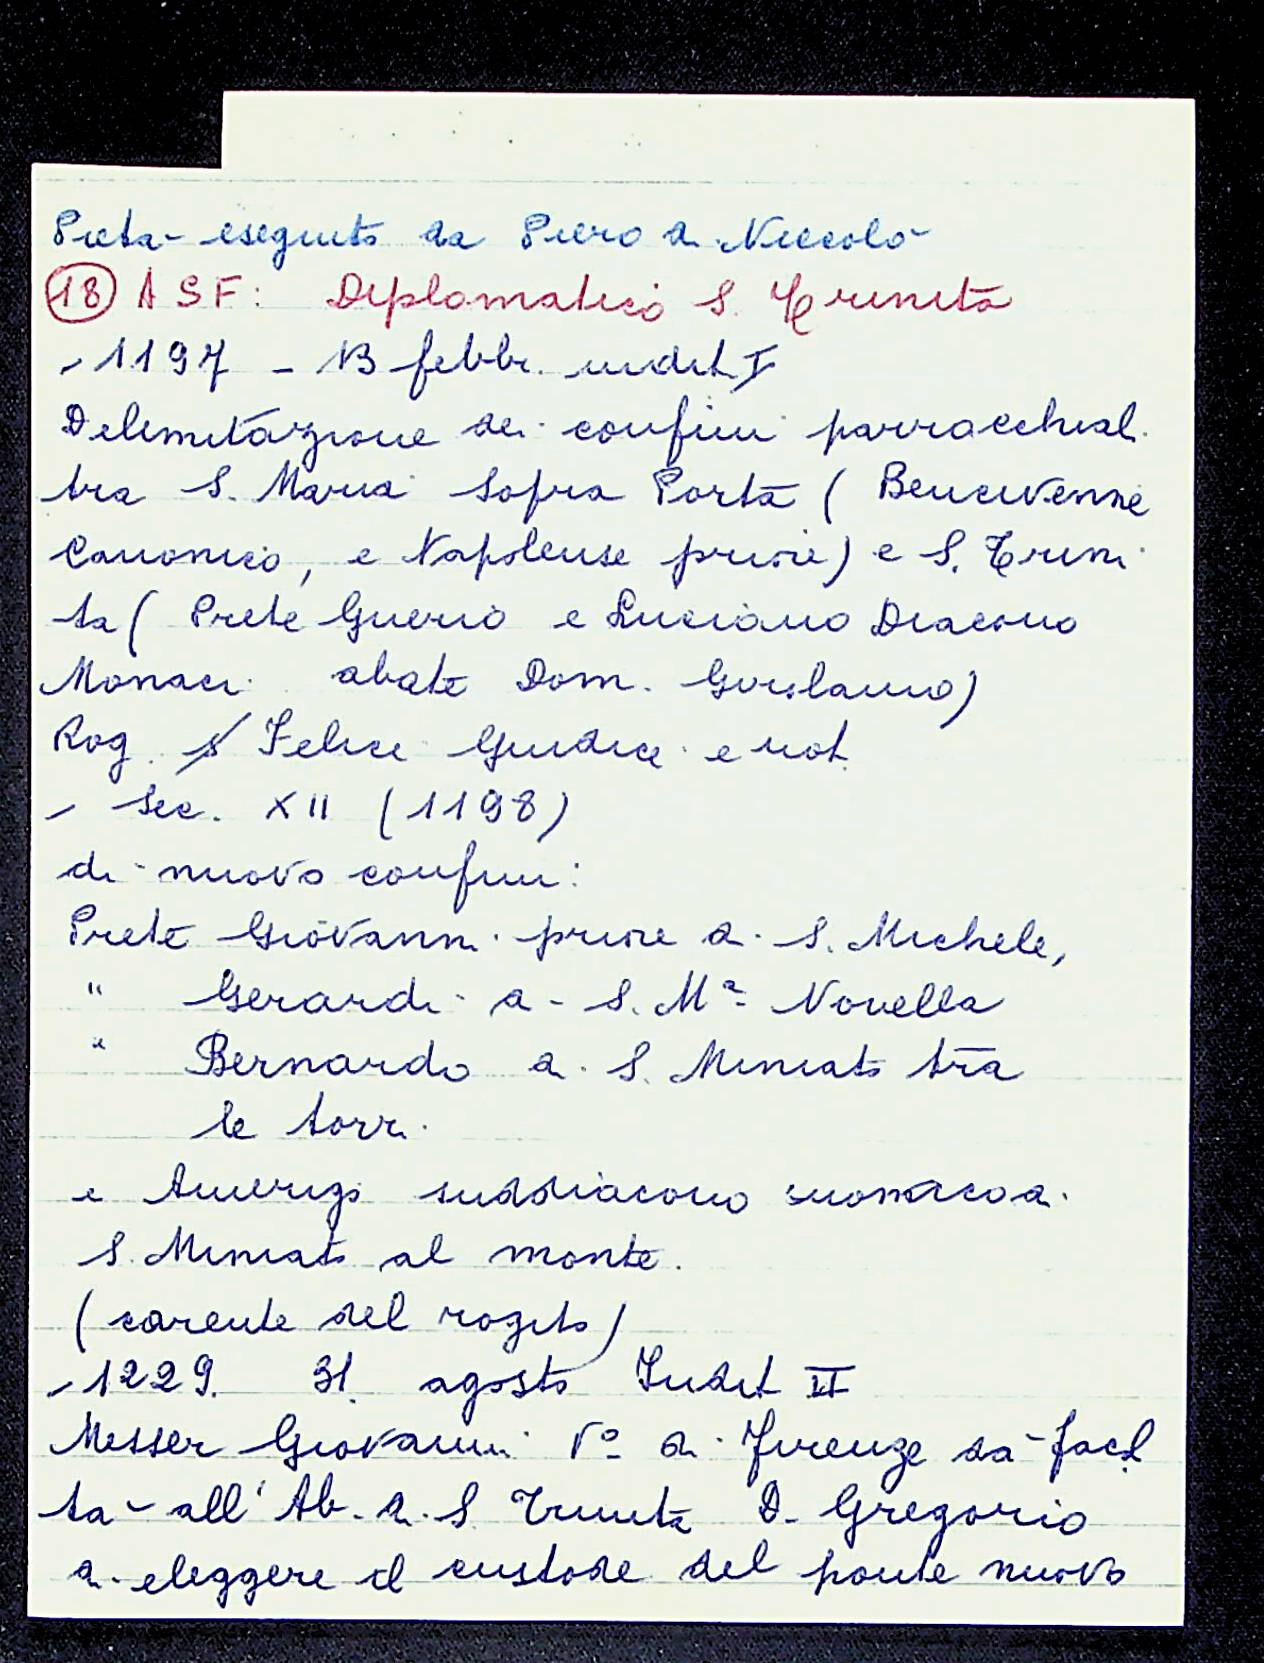 Pietà eseguito da Piero di Niccolò
18 ASF: Diplomatico S. Trinità
- 1197 - 13 febbr. indit I
Delimitazione dei confini parrocchiali
tra S. Maria Sopra Porta (Bencivenne
Canonico, e Napoleuse priore) e S. Trini
ta (Prete Guerio e Luciano Diacono
Monaci abate Dom. Girolamo)
Rog. Felice Giudice e not.
- sec. XII (1198)
di nuovo confini:
Prete Giovanni priore di S. Michele,
" Gerardi di S. Mª Novella
" Bernardo di S. Miniato tra
le torri
e Amerigo suddiacono monaco di
S. Miniato al monte.
(carente del rogito)
- 1229. 31. agosto Indit II
Messer Giovanni Vº di Firenze dà facol
tà all'Ab. di S. Trinita D. Gregorio
di eleggere il custode del ponte nuovo